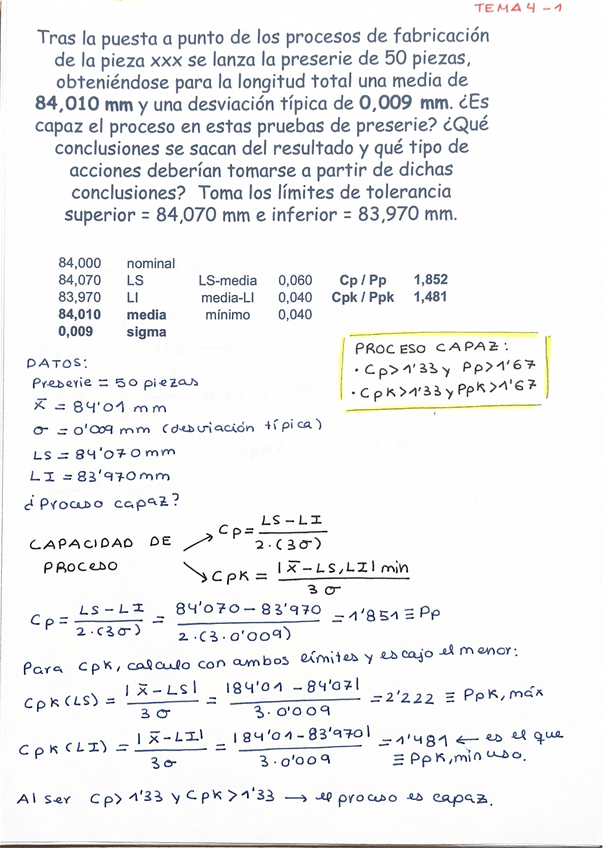 TEMA 4 - 1
Tras la puesta a punto de los procesos de fabricación
de la pieza xxx se lanza la preserie de 50 piezas,
obteniéndose para la longitud total una media de
84,010 mm y una desviación típica de 0,009 mm. ¿Es
capaz el proceso en estas pruebas de preserie? ¿Qué
conclusiones se sacan del resultado y qué tipo de
acciones deberían tomarse a partir de dichas
conclusiones? Toma los límites de tolerancia
superior = 84,070 mm e inferior = 83,970 mm.
84,000 nominal
84,070 LS LS-media 0,060 Cp / Pp 1,852
83,970 LI media-LI 0,040 Cpk / Ppk 1,481
84,010 media mínimo 0,040
0,009 sigma
PROCESO CAPAZ:
· Cp>1'33 y Pp>1'67
· CpK>1'33 y PpK>1'67
DATOS:
Preserie = 50 piezas
x̅ = 84'01 mm
σ = 0'009 mm (desviación típica)
LS = 84'070 mm
LI = 83'970 mm
¿Proceso capaz?
CAPACIDAD DE PROCESO
Cp = LS-LI / 2·(3σ)
CpK = |x̅-LS,LI| min / 3σ
Cp = LS-LI / 2·(3σ) = 84'070-83'970 / 2·(3·0'009) = 1'851 ≡ Pp
Para CpK, calculo con ambos límites y escojo el menor:
CpK (LS) = |x̅-LS| / 3σ = |84'01-84'07| / 3·0'009 = 2'222 ≡ PpK, máx
CpK (LI) = |x̅-LI| / 3σ = |84'01-83'970| / 3·0'009 = 1'481 ← es el que
≡ PpK, min uso.
Al ser Cp>1'33 y CpK>1'33 → el proceso es capaz.